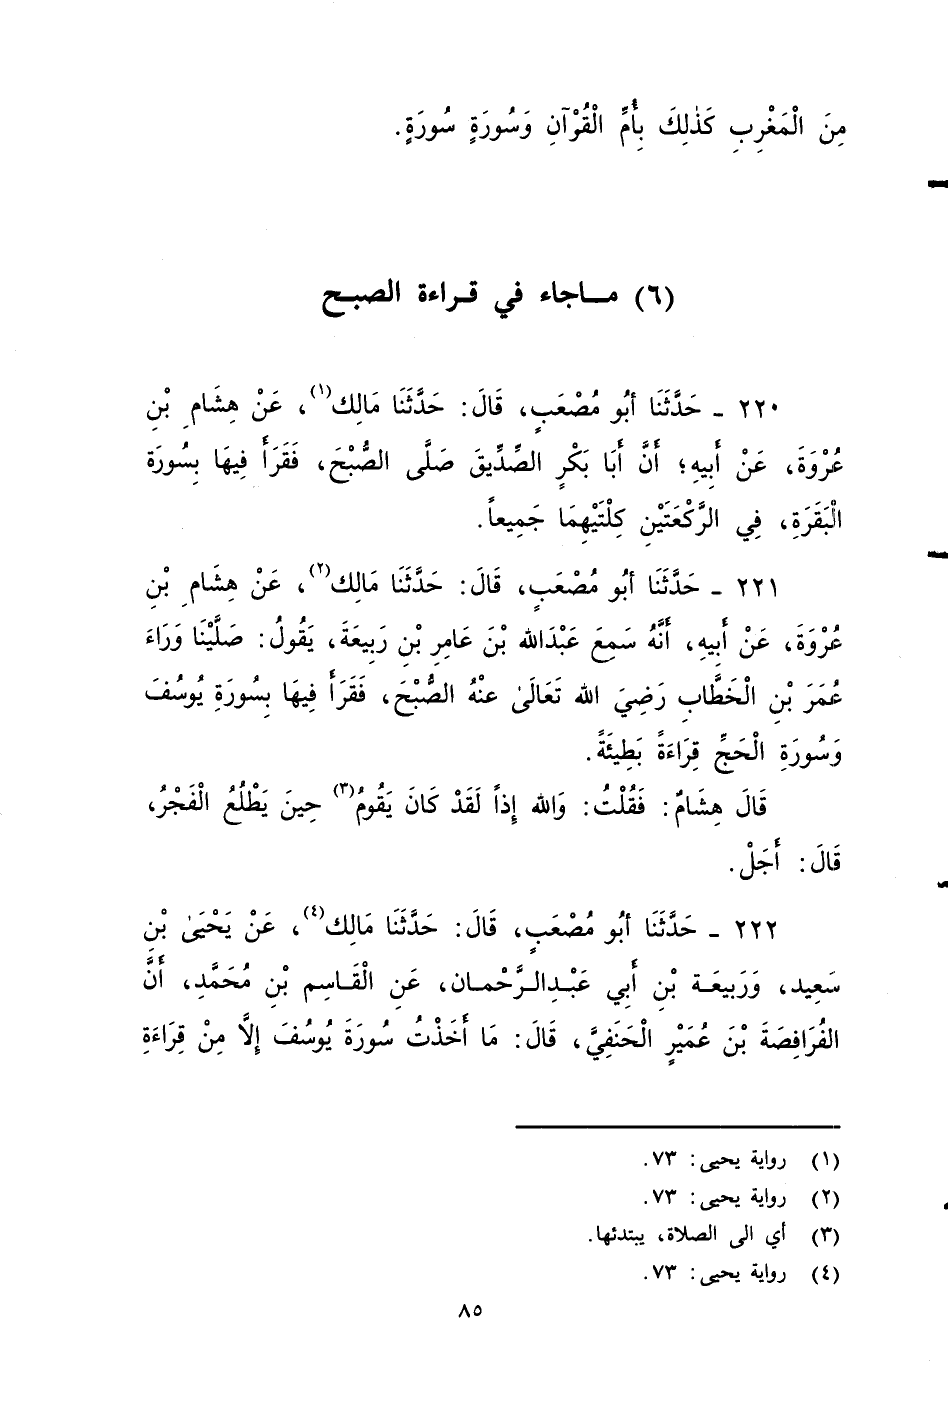 مِنَ الْمَغْرِبِ كَذٰلِكَ بِأُمِّ الْقُرْآنِ وَسُورَةٍ سُورَةٍ.
(٦) مـاجاء في قـراءة الصبـح
٢٢٠ ـ حَدَّثَنَا أَبُو مُصْعَبٍ، قَالَ: حَدَّثَنَا مَالِك(١)، عَنْ هِشَامِ بْنِ
عُرْوَةَ، عَنْ أَبِيهِ؛ أَنَّ أَبَا بَكْرٍ الصِّدِّيقَ صَلَّى الصُّبْحَ، فَقَرَأَ فِيهَا بِسُورَة
الْبَقَرَةِ، فِي الرَّكْعَتَيْنِ كِلْتَيْهِمَا جَمِيعاً.
٢٢١ ـ حَدَّثَنَا أَبُو مُصْعَبٍ، قَالَ: حَدَّثَنَا مَالِك(٢)، عَنْ هِشَامِ بْنِ
عُرْوَةَ، عَنْ أَبِيهِ، أَنَّهُ سَمِعَ عَبْدَالله بْنَ عَامِرِ بْنِ رَبِيعَةَ، يَقُولُ: صَلَّيْنَا وَرَاءَ
عُمَرَ بْنِ الْخَطَّابِ رَضِيَ الله تَعَالَىٰ عنْهُ الصُّبْحَ، فَقَرَأَ فِيهَا بِسُورَةِ يُوسُفَ
وَسُورَةِ الْحَجِّ قِرَاءَةً بَطِيئَةً.
قَالَ هِشَامٌ: فَقُلْتُ: وَالله إِذاً لَقَدْ كَانَ يَقُومُ(٣) حِينَ يَطْلُعُ الْفَجْرُ،
قَالَ: أَجَلْ.
٢٢٢ ـ حَدَّثَنَا أَبُو مُصْعَبٍ، قَالَ: حَدَّثَنَا مَالِك(٤)، عَنْ يَحْيَىٰ بْنِ
سَعِيد، وَرَبِيعَـة بْنِ أَبِي عَبْـدِالـرَّحْمـان، عَنِ الْقَـاسِمِ بْنِ مُحَمَّدٍ، أَنَّ
الفُرَافِصَةَ بْنَ عُمَيْرٍ الْحَنَفِيَّ، قَالَ: مَا أَخَذْتُ سُورَةَ يُوسُفَ إِلَّا مِنْ قِرَاءَةِ
(١) رواية يحيى: ٧٣.
(٢) رواية يحيى: ٧٣.
(٣) أي الى الصلاة، يبتدئها.
(٤) رواية يحيى: ٧٣.
٨٥